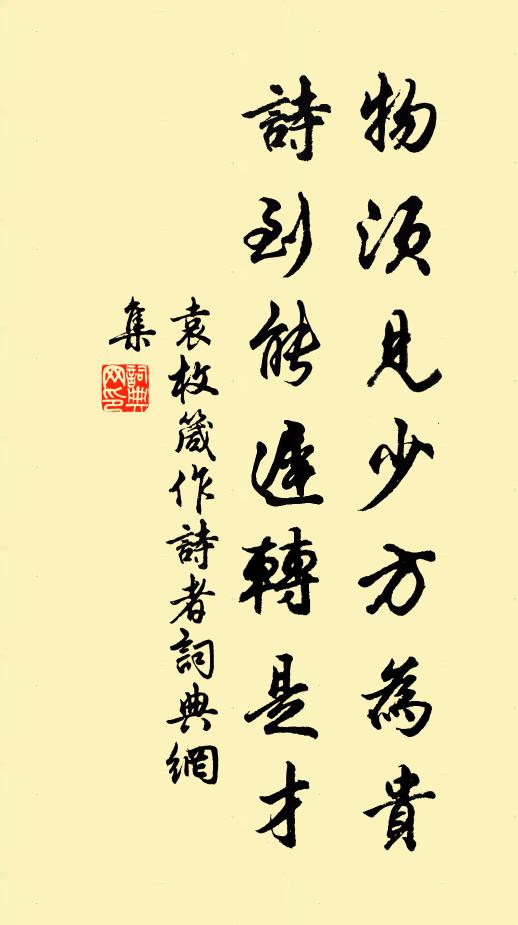 物須見少方為貴
詩到能遲轉是才
袁枚箴作詩者詞典網
集
詞典
网印